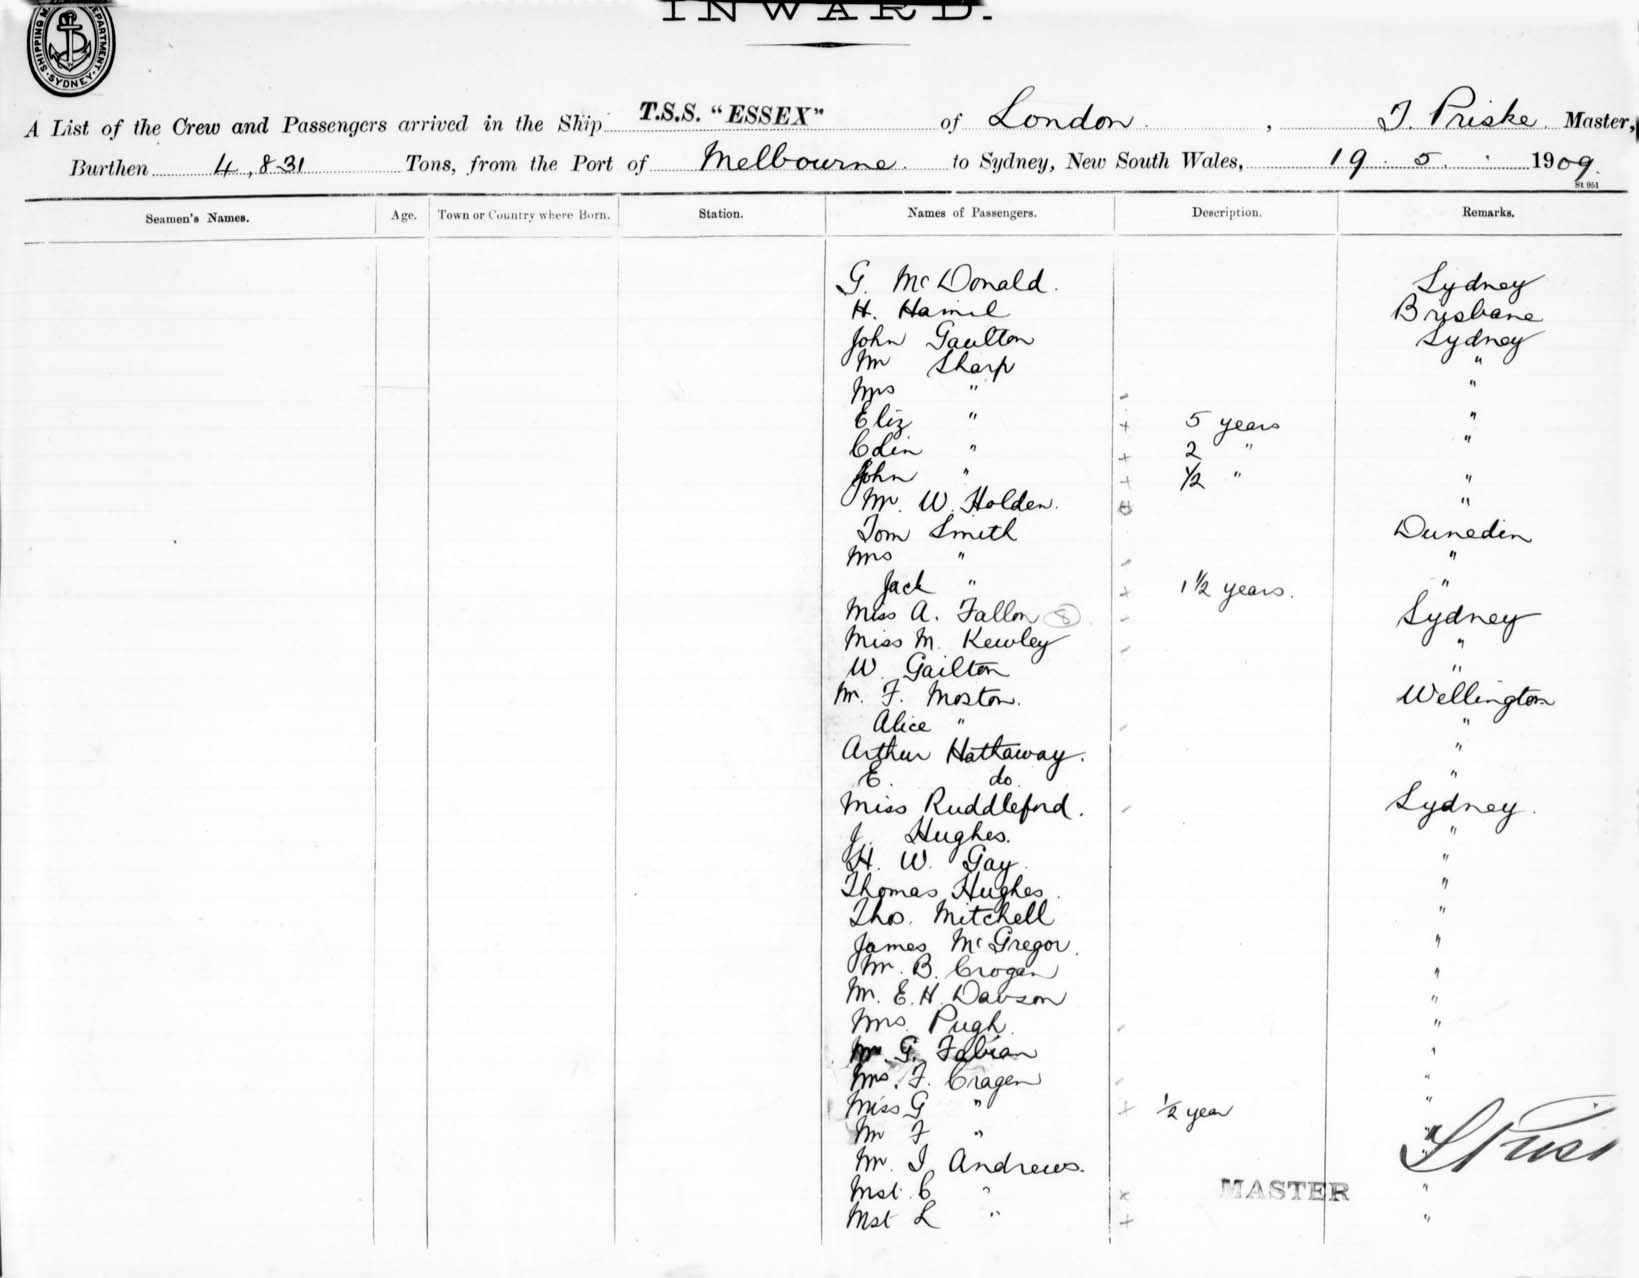 INWARD.
SHIPPING M DEPARTMENT. SYDNEY.
A List of the Crew and Passengers arrived in the Ship T.S.S. "ESSEX" of London, J. Priske Master,
Burthen 4,831 Tons, from the Port of Melbourne to Sydney, New South Wales, 19 . 5 . 1909.
St 951
Seamen's Names. Age. Town or Country where Born. Station. Names of Passengers. Description. Remarks.
G. McDonald. Sydney
H. Hamil Brisbane
John Gaulton Sydney
Mr Sharp "
Mrs " "
Eliz " + 5 years "
Colin " + 2 " "
John " + 1/2 " "
Mr. W. Holden. "
Tom Smith Dunedin
Mrs " "
Jack " + 1 1/2 years. "
Miss A. Fallon 8 Sydney
Miss M. Kewley "
W Gailton "
Mr. F. Moston. Wellington
Alice " "
Arthur Hathaway. "
E. do "
Miss Ruddleford. Sydney.
J. Hughes. "
H. W. Gay. "
Thomas Hughes. "
Thos. Mitchell "
James McGregor. "
Mr. B. Crogan "
Mr. E. H. Davson "
Mrs. Pugh. "
Mr. G. Fabian "
Mrs. F. Cragen "
Miss G " + 1/2 year "
Mr F " "
Mr. J. Andrews.
Mst. C " x MASTER "
Mst L " + "